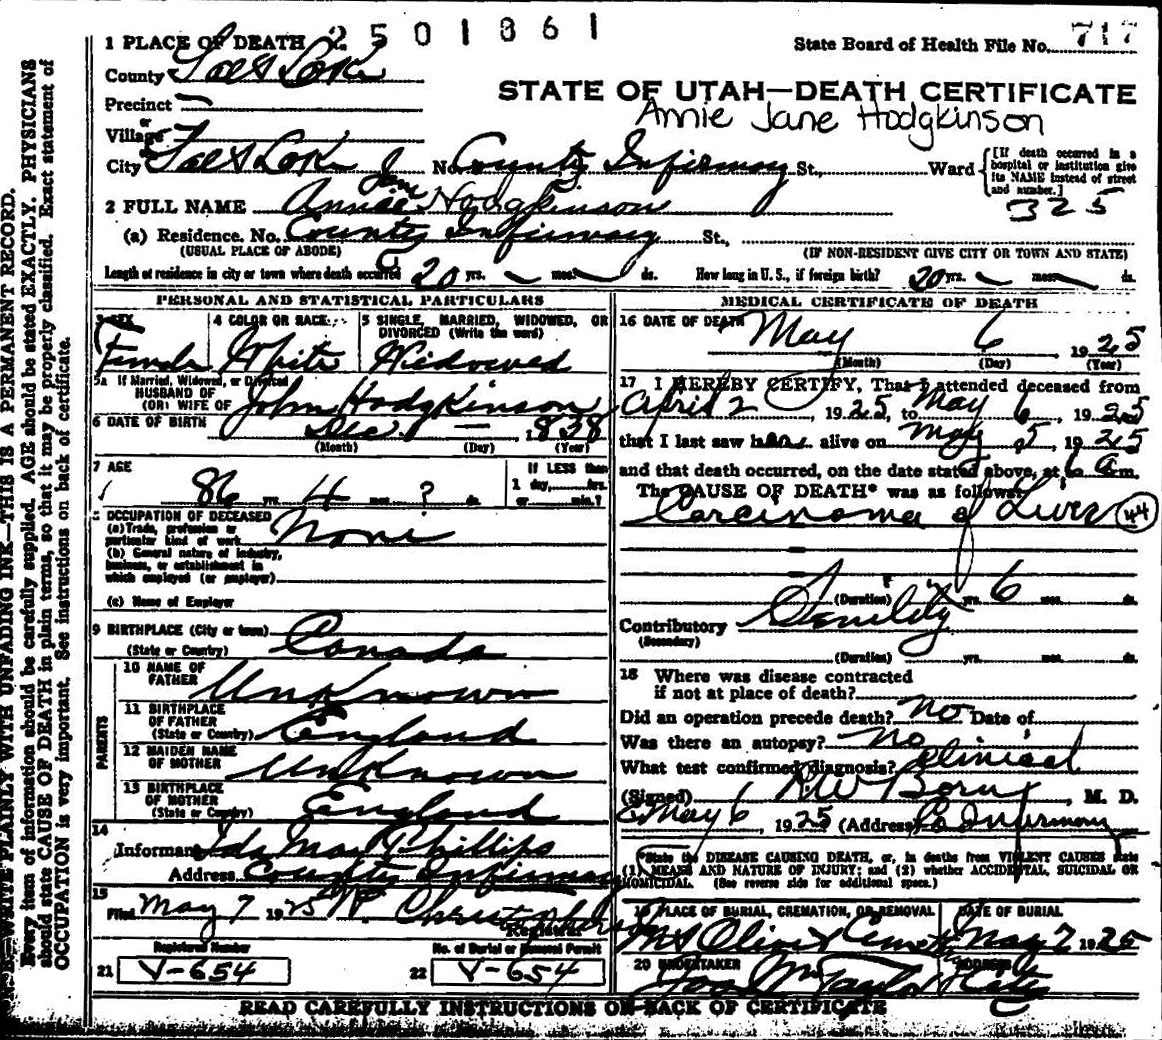 2501861
717
1 PLACE OF DEATH
State Board of Health File No.
County Salt Lake
STATE OF UTAH—DEATH CERTIFICATE
Precinct
Annie Jane Hodgkinson
or
Village
or
City Salt Lake No. County Infirmary St., Ward
[If death occurred in a hospital or institution give its NAME instead of street and number.]
325
2 FULL NAME Annie Jane Hodgkinson
(a) Residence. No. County Infirmary St.,
(USUAL PLACE OF ABODE) (IF NON-RESIDENT GIVE CITY OR TOWN AND STATE)
Length of residence in city or town where death occurred 20 yrs. mos. ds. How long in U. S., if foreign birth? 20 yrs. mos. ds.
PERSONAL AND STATISTICAL PARTICULARS
3 SEX Female
4 COLOR OR RACE White
5 SINGLE, MARRIED, WIDOWED, OR DIVORCED (Write the word) Widowed
5a If Married, Widowed, or Divorced
HUSBAND OF
(OR) WIFE OF John Hodgkinson
6 DATE OF BIRTH Dec. — 1838
(Month) (Day) (Year)
7 AGE 86 yrs. 4 mos. ? ds.
If LESS than 1 day, hrs. or min.?
OCCUPATION OF DECEASED
(a) Trade, profession or particular kind of work None
(b) General nature of industry, business, or establishment in which employed (or employer)
(c) Name of Employer
9 BIRTHPLACE (City or town)
(State or Country) Canada
PARENTS
10 NAME OF FATHER Unknown
11 BIRTHPLACE OF FATHER (State or Country) England
12 MAIDEN NAME OF MOTHER Unknown
13 BIRTHPLACE OF MOTHER (State or Country) England
14 Informant Ida May Phillips
Address County Infirmary
15 Filed May 7 1925
Registrar
Registered Number No. of Burial or Removal Permit
21 V-654 22 V-654
MEDICAL CERTIFICATE OF DEATH
16 DATE OF DEATH May 6 1925
(Month) (Day) (Year)
17 I HEREBY CERTIFY, That I attended deceased from
April 2 1925, to May 6, 1925
that I last saw her alive on May 5, 1925
and that death occurred, on the date stated above, at 6 a m.
The CAUSE OF DEATH* was as follows:
Carcinoma of Liver 44
(Duration) yrs. 6 mos. ds.
Contributory Senility
(Secondary)
(Duration) yrs. mos. ds.
18 Where was disease contracted
if not at place of death?
Did an operation precede death? no Date of
Was there an autopsy? no
What test confirmed diagnosis? Clinical
(Signed) M. D.
May 6, 1925 (Address) Co Infirmary
*State the DISEASE CAUSING DEATH, or, in deaths from VIOLENT CAUSES state
(1) MEANS AND NATURE OF INJURY; and (2) whether ACCIDENTAL, SUICIDAL OR
HOMICIDAL. (See reverse side for additional space.)
19 PLACE OF BURIAL, CREMATION, OR REMOVAL DATE OF BURIAL
Mt Olivet Cemetery May 7 1925
20 UNDERTAKER ADDRESS
READ CAREFULLY INSTRUCTIONS ON BACK OF CERTIFICATE
N. B.—WRITE PLAINLY WITH UNFADING INK—THIS IS A PERMANENT RECORD.
Every item of information should be carefully supplied. AGE should be stated EXACTLY. PHYSICIANS
should state CAUSE OF DEATH in plain terms, so that it may be properly classified. Exact statement of
OCCUPATION is very important. See instructions on back of certificate.